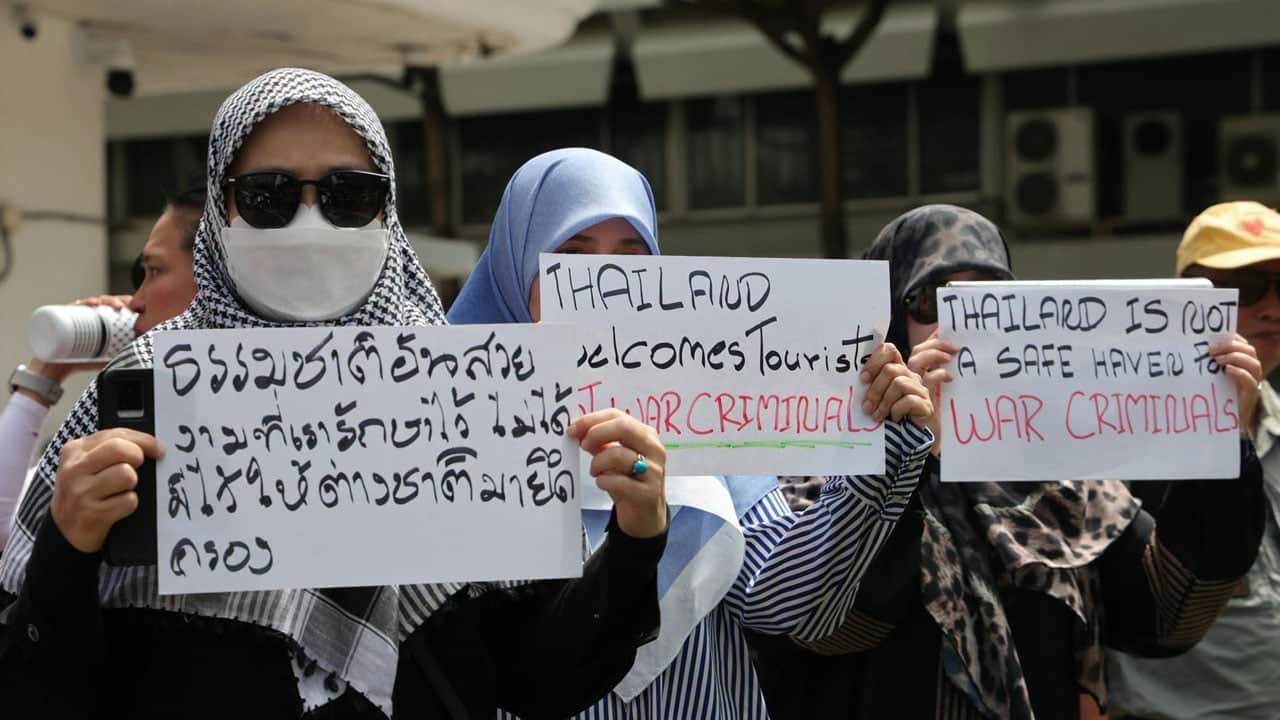 ธรรมชาติอันสวย
งามที่เรารักษาไว้ ไม่ได้
มีไว้ให้ต่างชาติมายึด
ครอง
THAILAND
welcomes Tourists
NOT WAR CRIMINALS
THAILAND IS NOT
A SAFE HAVEN FOR
WAR CRIMINALS